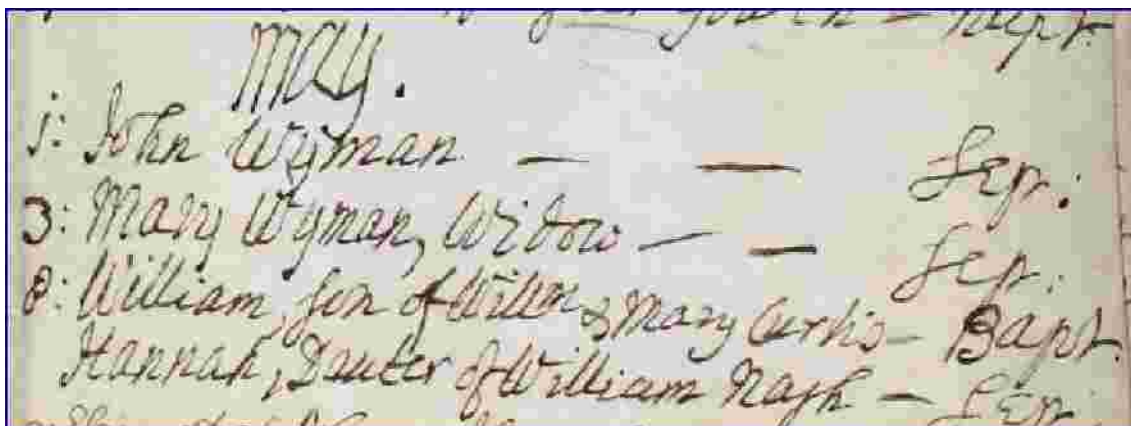 May.
1: John Wyman — — Sep.
3: Mary Wyman, Widow — — Sep.
8: William, son of Willm & Mary Curtis — Bapt.
Hannah, Dauter of William Nash — Sep.